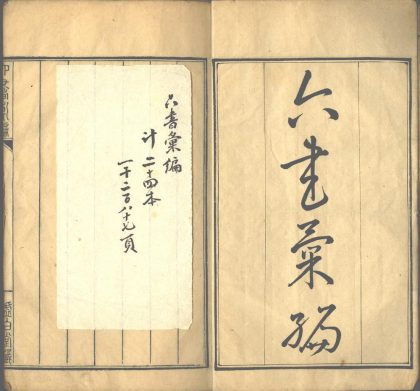 六書彙編
六書彙編
计二十四本
一千二百八十七頁